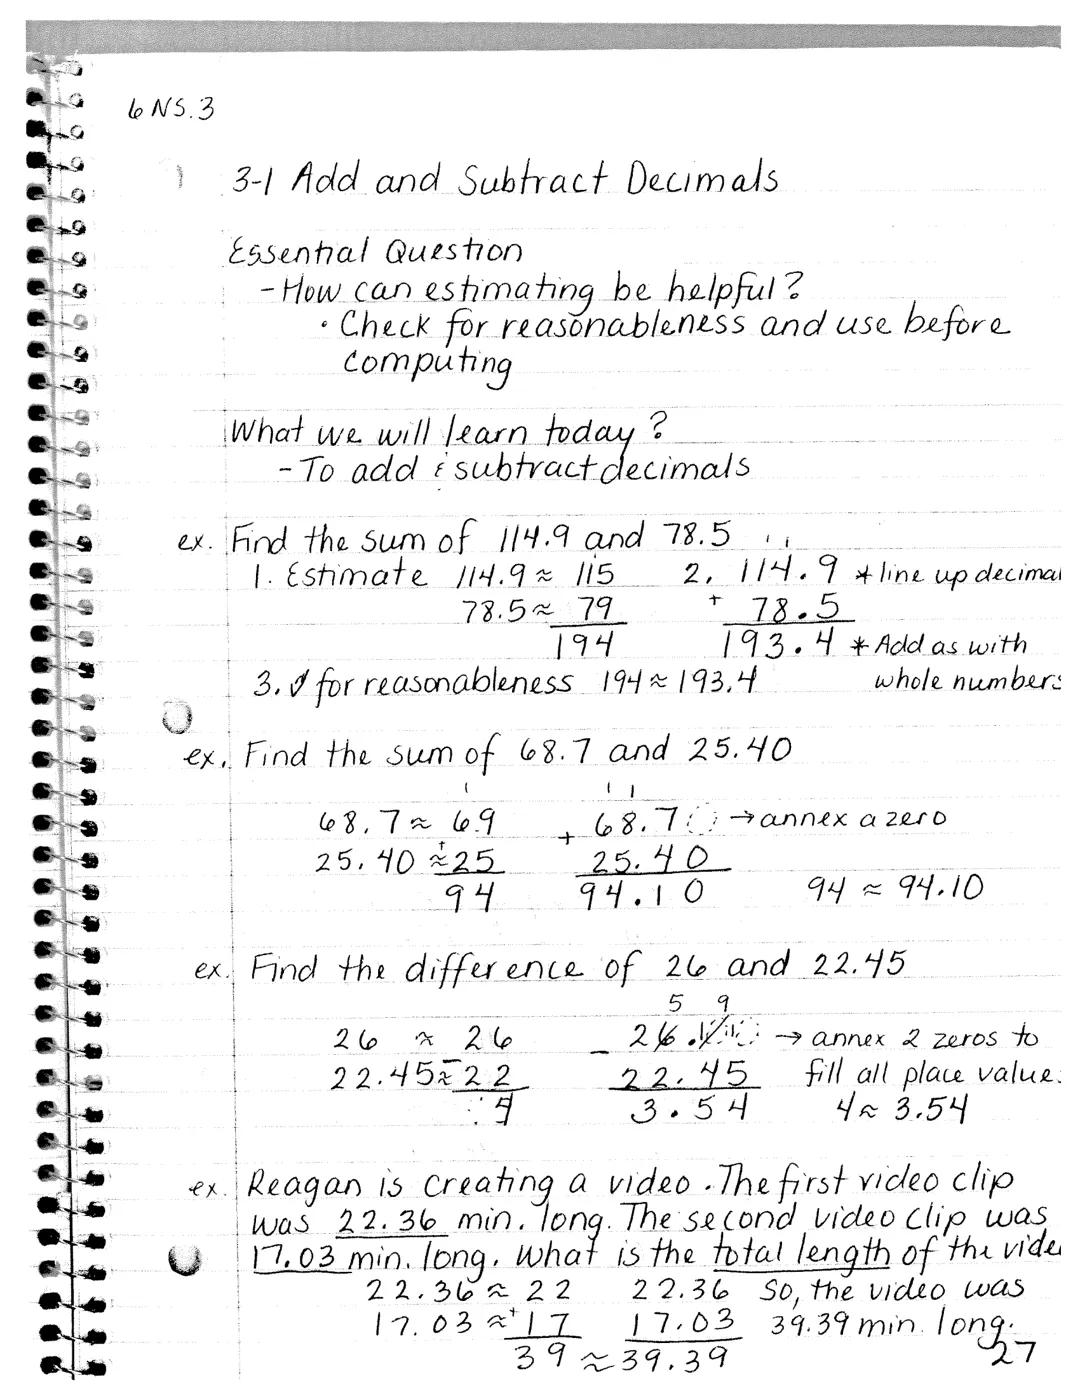 6 NS.3
3-1 Add and Subtract Decimals
Essential Question
- How can estimating be helpful?
• Check for reasonableness and use before
computing
What we will learn today?
- To add & subtract decimals
ex. Find the sum of 114.9 and 78.5
1. Estimate 114.9 ≈ 115
78.5 ≈ 79
194
1 1
2. 114.9 * line up decimal
+ 78.5
193.4 * Add as with
whole numbers
3. ✓ for reasonableness 194 ≈ 193.4
ex. Find the sum of 68.7 and 25.40
1
68.7 ≈ 69
25.40 ≈ + 25
94
1 1
+ 68.70 → annex a zero
25.40
94.10
94 ≈ 94.10
ex. Find the difference of 26 and 22.45
26 ≈ 26
22.45 ≈ - 22
4
5 9
- 26.00 → annex 2 zeros to
22.45 fill all place value.
3.54 4 ≈ 3.54
ex. Reagan is creating a video. The first video clip
was 22.36 min. long. The second video clip was
17.03 min. long. What is the total length of the vide
22.36 ≈ 22
17.03 ≈ + 17
39 ≈ 39.39
22.36 So, the video was
17.03 39.39 min. long.
27